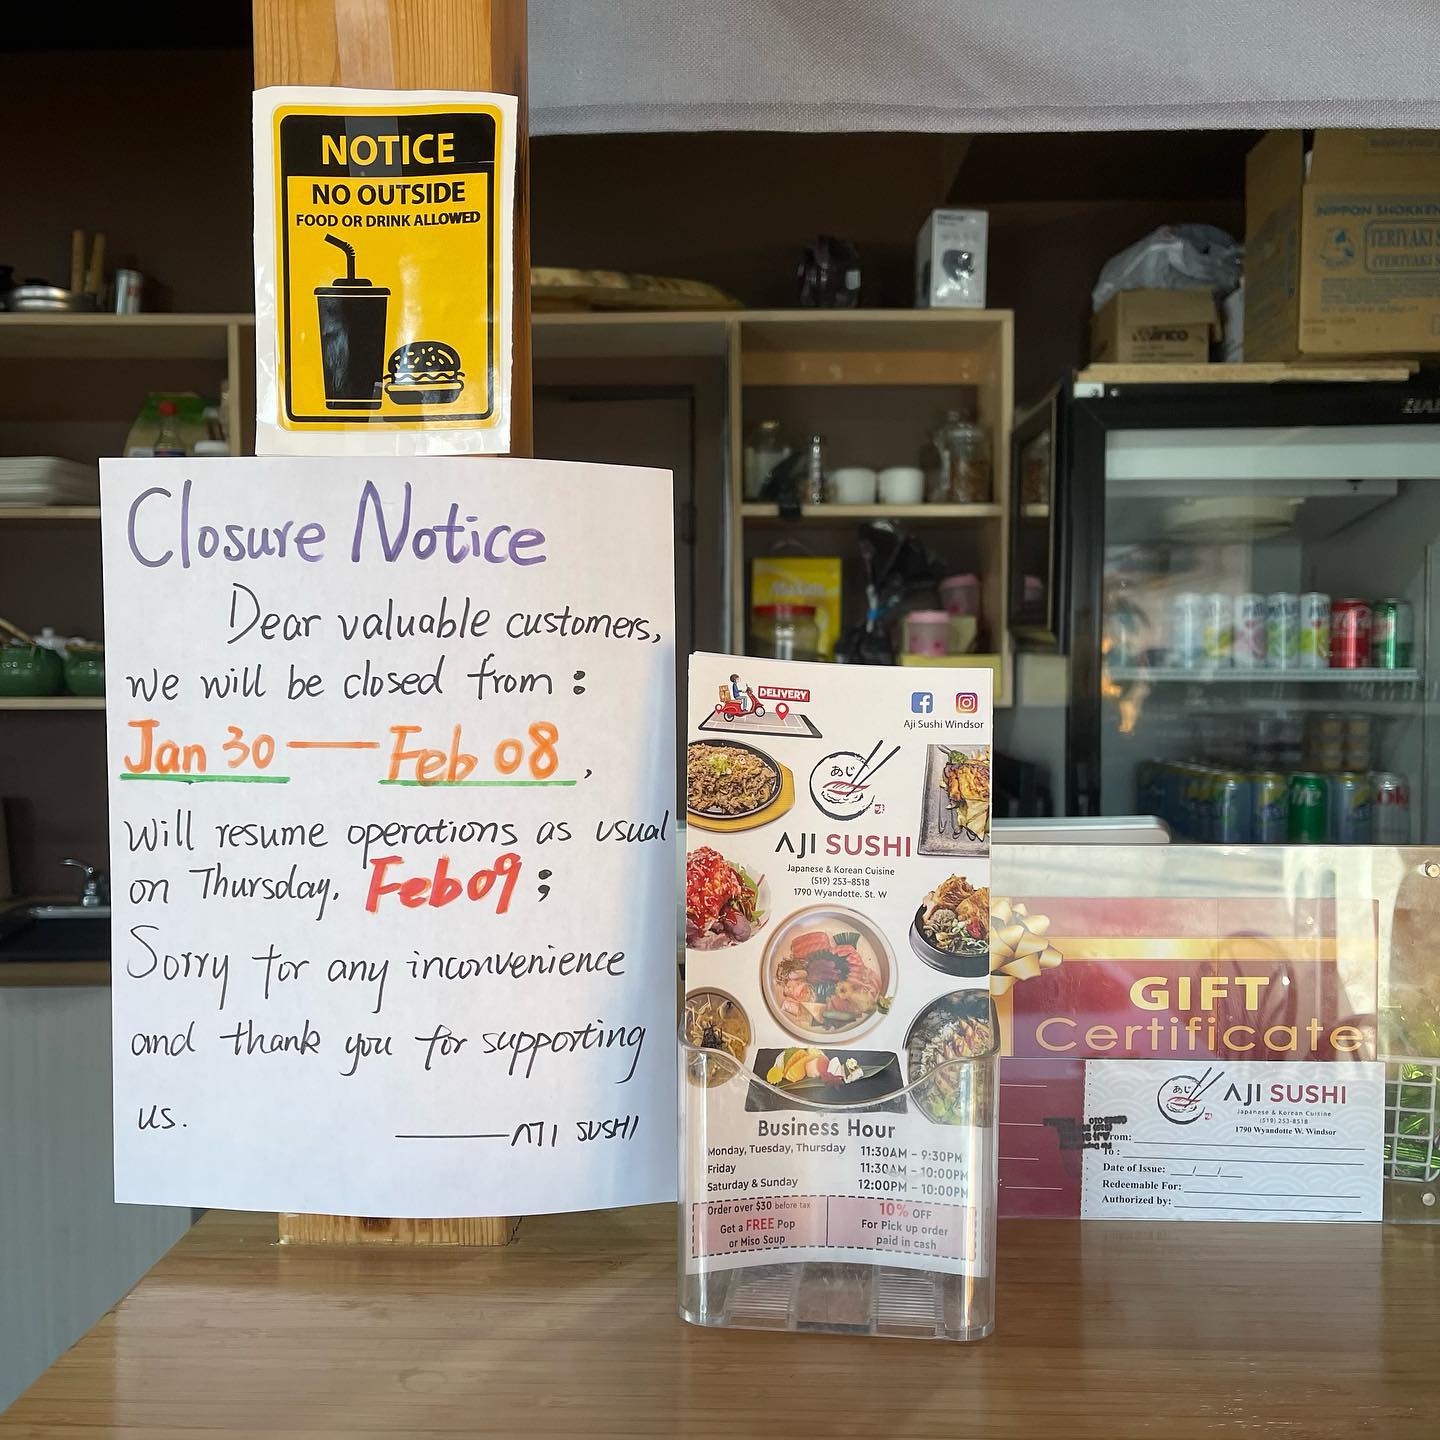 NOTICE
NO OUTSIDE
FOOD OR DRINK ALLOWED
Closure Notice
Dear valuable customers,
we will be closed from:
Jan 30 — Feb 08,
Will resume operations as usual
on Thursday, Feb 09;
Sorry for any inconvenience
and thank you for supporting
us.
—— AJI SUSHI
DELIVERY
Aji Sushi Windsor
あじ
AJI SUSHI
Japanese & Korean Cuisine
(519) 253-8518
1790 Wyandotte. St. W
Business Hour
Monday, Tuesday, Thursday 11:30AM - 9:30PM
Friday 11:30AM - 10:00PM
Saturday & Sunday 12:00PM - 10:00PM
Order over $30 before tax
Get a FREE Pop
or Miso Soup
10% OFF
For Pick up order
paid in cash
GIFT
Certificate
あじ
AJI SUSHI
Japanese & Korean Cuisine
(519) 253-8518
1790 Wyandotte W. Windsor
From:
To :
Date of Issue: __/__/__
Redeemable For:
Authorized by:
NIPPON SHOKKEN
TERIYAKI
(TERIYAKI
Winco